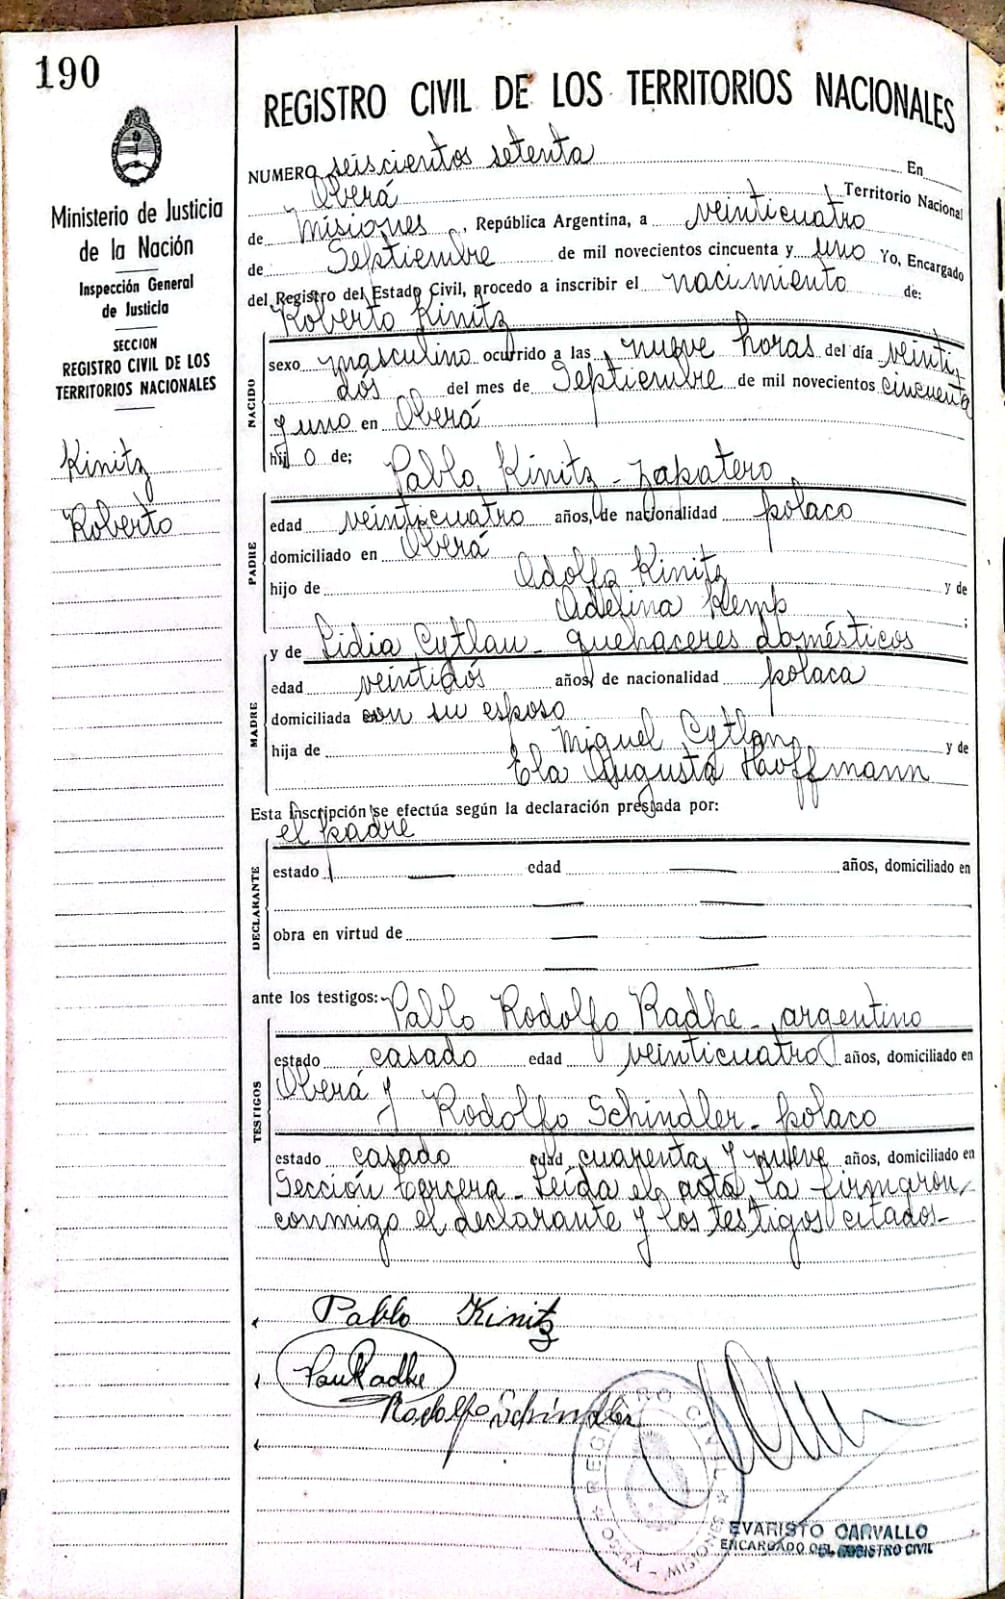 190
REGISTRO CIVIL DE LOS TERRITORIOS NACIONALES
Ministerio de Justicia
de la Nación
Inspección General
de Justicia
SECCION
REGISTRO CIVIL DE LOS
TERRITORIOS NACIONALES
Kinitz
Roberto
NUMERO seiscientos setenta En
Oberá Territorio Nacional
de Misiones, República Argentina, a veinticuatro
de Septiembre de mil novecientos cincuenta y uno Yo, Encargado
del Registro del Estado Civil, procedo a inscribir el nacimiento de:
Roberto Kinitz
NACIDO
sexo masculino ocurrido a las nueve horas del día veinti
dós del mes de Septiembre de mil novecientos cincuenta
y uno en Oberá
hij o de;
Pablo Kinitz - zapatero
PADRE
edad veinticuatro años, de nacionalidad polaco
domiciliado en Oberá
hijo de Adolfo Kinitz y de
Adelina Kemp ;
y de Lidia Cytlau - quehaceres domésticos
MADRE
edad veintidós años, de nacionalidad polaca
domiciliada con su esposo
hija de Miguel Cytlau y de
Ela Augusta Hauffmann
Esta inscripción se efectúa según la declaración prestada por:
el padre
DECLARANTE
estado — edad — años, domiciliado en
— —
obra en virtud de — —
— —
ante los testigos: Pablo Rodolfo Radhe - argentino
TESTIGOS
estado casado edad veinticuatro años, domiciliado en
Oberá y
Rodolfo Schindler - polaco
estado casado edad cuarenta y nueve años, domiciliado en
Sección tercera - Leída el acta, la firmaron
conmigo el declarante y los testigos citados-
Pablo Kinitz
Paul Radhe
Rodolfo Schindler
REGISTRO CIVIL
OBERÁ - MISIONES
EVARISTO CARVALLO
ENCARGADO DEL REGISTRO CIVIL